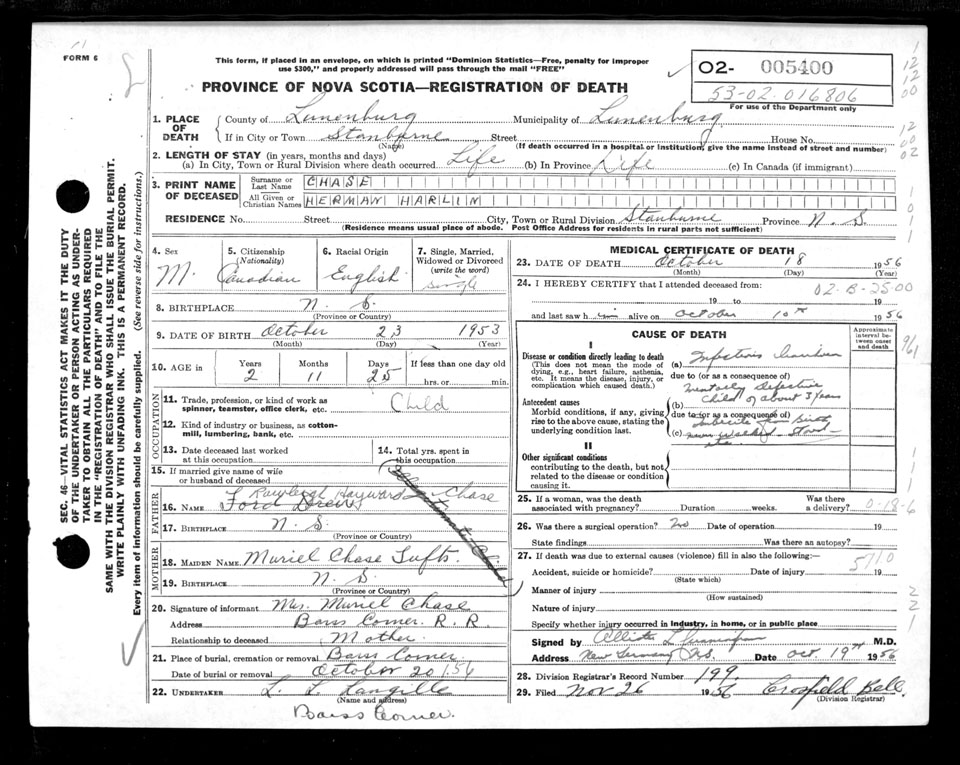 FORM 6
This form, if placed in an envelope, on which is printed "Dominion Statistics—Free, penalty for improper
use $300," and properly addressed will pass through the mail "FREE"
PROVINCE OF NOVA SCOTIA—REGISTRATION OF DEATH
02- 005400
53-02.016806
For use of the Department only
SEC. 46—VITAL STATISTICS ACT MAKES IT THE DUTY
OF THE UNDERTAKER OR PERSON ACTING AS UNDER-
TAKER TO OBTAIN ALL THE PARTICULARS REQUIRED
IN THE "REGISTRATION OF DEATH" AND TO FILE THE
SAME WITH THE DIVISION REGISTRAR WHO SHALL ISSUE THE BURIAL PERMIT.
WRITE PLAINLY WITH UNFADING INK. THIS IS A PERMANENT RECORD.
Every item of information should be carefully supplied. (See reverse side for instructions.)
1. PLACE OF DEATH
County of Lunenburg Municipality of Lunenburg
If in City or Town Stanburne Street House No.
(Name) (If death occurred in a hospital or institution, give the name instead of street and number)
2. LENGTH OF STAY (in years, months and days)
(a) In City, Town or Rural Division where death occurred Life (b) In Province Life (c) In Canada (if immigrant)
3. PRINT NAME OF DECEASED
Surname or Last Name CHASE
All Given or Christian Names HERMAN HARLIN
RESIDENCE No. Street City, Town or Rural Division Stanburne Province N. S
(Residence means usual place of abode. Post Office Address for residents in rural parts not sufficient)
4. Sex
M.
5. Citizenship
(Nationality)
Canadian
6. Racial Origin
English
7. Single, Married,
Widowed or Divorced
(write the word)
Single
8. BIRTHPLACE N. S.
(Province or Country)
9. DATE OF BIRTH October 23 1953
(Month) (Day) (Year)
10. AGE in
Years Months Days If less than one day old
2 11 25 hrs. or min.
OCCUPATION
11. Trade, profession, or kind of work as
spinner, teamster, office clerk, etc. Child
12. Kind of industry or business, as cotton-
mill, lumbering, bank, etc.
13. Date deceased last worked
at this occupation
14. Total yrs. spent in
this occupation
15. If married give name of wife
or husband of deceased
FATHER
Rawleigh Hayward Chase
16. NAME Ford
17. BIRTHPLACE N S
(Province or Country)
MOTHER
18. MAIDEN NAME Muriel Chase Tufts.
19. BIRTHPLACE N. S.
(Province or Country)
20. Signature of informant Mrs. Muriel Chase
Address Barss Corner. R. R
Relationship to deceased Mother
21. Place of burial, cremation or removal Barss Corner
Date of burial or removal October 20/56
22. UNDERTAKER L. L. Langille
(Name and address)
Barss Corner.
MEDICAL CERTIFICATE OF DEATH
23. DATE OF DEATH October 18 1956
(Month) (Day) (Year)
24. I HEREBY CERTIFY that I attended deceased from:
02-B-25-00
19 to 19
and last saw h im alive on October 10th 1956
CAUSE OF DEATH
Approximate interval between onset and death
I
Disease or condition directly leading to death
(This does not mean the mode of
dying, e.g., heart failure, asthenia,
etc. It means the disease, injury, or
complication which caused death.)
(a) Infectious
due to (or as a consequence of)
Antecedent causes
Morbid conditions, if any, giving
rise to the above cause, stating the
underlying condition last.
Mentally Defective
(b) Child of about 3 years
due to (or as a consequence of)
from birth
(c) never walked - stood
etc.
II
Other significant conditions
contributing to the death, but not
related to the disease or condition
causing it.
25. If a woman, was the death
associated with pregnancy? Duration weeks.
Was there
a delivery? 0-18-6
26. Was there a surgical operation? No Date of operation 19
State findings Was there an autopsy?
27. If death was due to external causes (violence) fill in also the following:—
Accident, suicide or homicide? Date of injury 19
(State which)
5710
Manner of injury
(How sustained)
Nature of injury
Specify whether injury occurred in industry, in home, or in public place
Signed by M.D.
Address New Germany N.S. Date Oct. 19th 1956
28. Division Registrar's Record Number 199.
29. Filed Nov 26 1956 Crosfield Bell.
(Division Registrar)